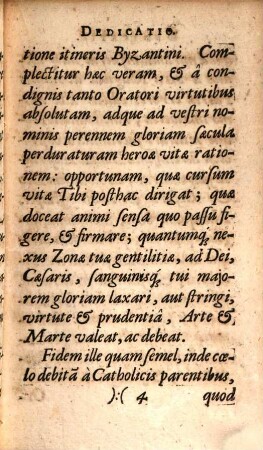 DEDICATIO.
tione itineris Byzantini. Com-
plectitur hæc veram, & â con-
dignis tanto Oratori virtutibus
absolutam, adque ad vestri no-
minis perennem gloriam sæcula
perduraturam heroæ vitæ ratio-
nem: opportunam, quæ cursum
vitæ Tibi posthac dirigat; quæ
doceat animi sensa quo passu fi-
gere, & firmare; quantumq́; ne-
xus Zonæ tuæ gentilitiæ, ad Dei,
Cæsaris, sanguinisq́; tui majo-
rem gloriam laxari, aut stringi,
virtute & prudentiâ, Arte &
Marte valeat, ac debeat.
Fidem ille quam semel, inde cœ-
lo debitã à Catholicis parentibus,
):( 4 quod